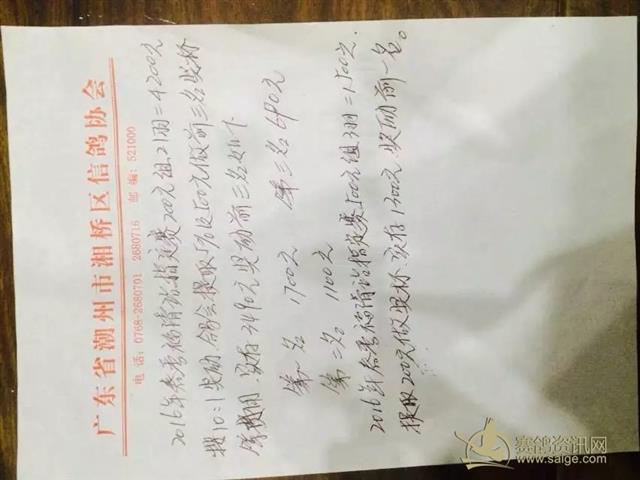 广东省潮州市湘桥区信鸽协会
电 话：0768-2680701 2680716 邮 编：521000
2016年冬季福清站指定赛200元组21羽=4200元
按10:1奖励 鸽会提取5%及500元做前三名奖杯
等费用.实存3490元奖励前三名如下
第一名 1700元 第三名 690元
第二名 1100元
2016年冬季福清站指定赛500元组3羽=1500元.
提取200元做奖杯 实存1300元.奖励前一名。
赛鸽资讯网
www.saige.com